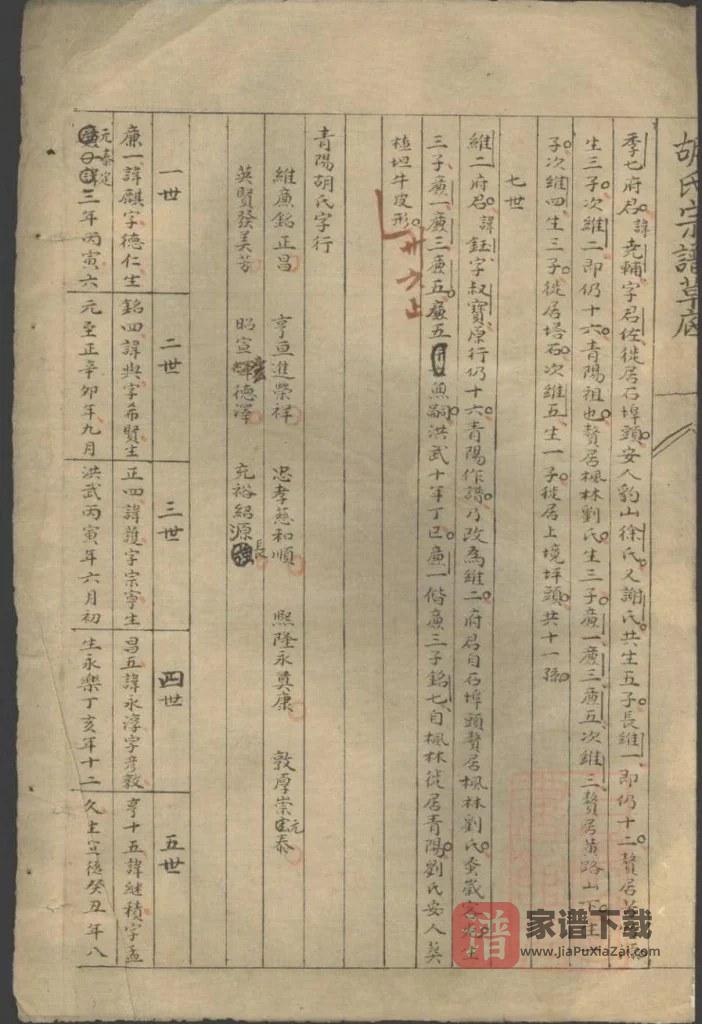 胡氏宗譜草底
季七府君諱堯輔字君佐徙居石埠頭安人豹山徐氏又謝氏共生五子長維一即仍十二贅居
生三子次維二即仍十六青陽祖也贅居楓林劉氏生三子廉一廉三廉五次維三贅居黃路山下生
子次維四生三子徙居塔石次維五生一子徙居上境坪頭共十一孫
七世
維二府君諱鈺字叔寶原行仍十六青陽作譜乃改為維二府君自石埠頭贅居楓林劉氏
三子廉一廉三廉五廉五無嗣洪武十年丁巳廉一偕廉三子銘七自楓林徙居青陽劉氏安人葬
植坦牛皮形
廿六止
青陽胡氏字行
維廉銘正昌 亨亘進榮祥 忠孝慈和順 熙隆永奠康 敦厚崇元泰
英賢發美芳 昭宣德澤 充裕紹源長
一世 二世 三世 四世 五世
廉一諱麒字德仁生
元泰定三年丙寅六
銘四諱與字希賢生
元至正辛卯年九月
正四諱護字宗寧生
洪武丙寅年六月初
昌五諱永淳字彥敦
生永樂丁亥年十二
亨十五諱継積字孟
久生宣德癸丑年八
譜
家谱下载
www.JiaPuXiaZai.com